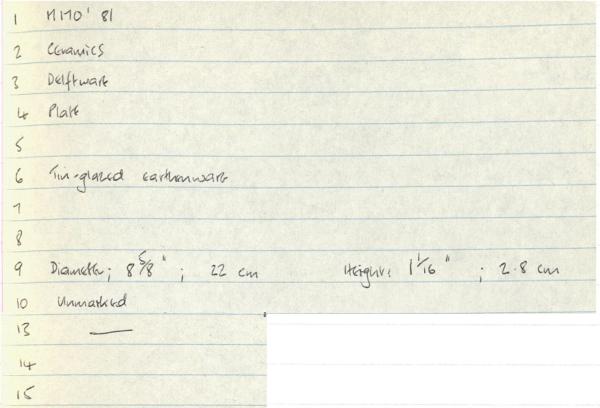 1 MMO' 81
2 Ceramics
3 Delftware
4 Plate
5
6 Tin-glazed earthenware
7
8
9 Diameter; 8 5/8 " ; 22 cm Height: 1 1/16 " ; 2.8 cm
10 Unmarked
13 —
14
15